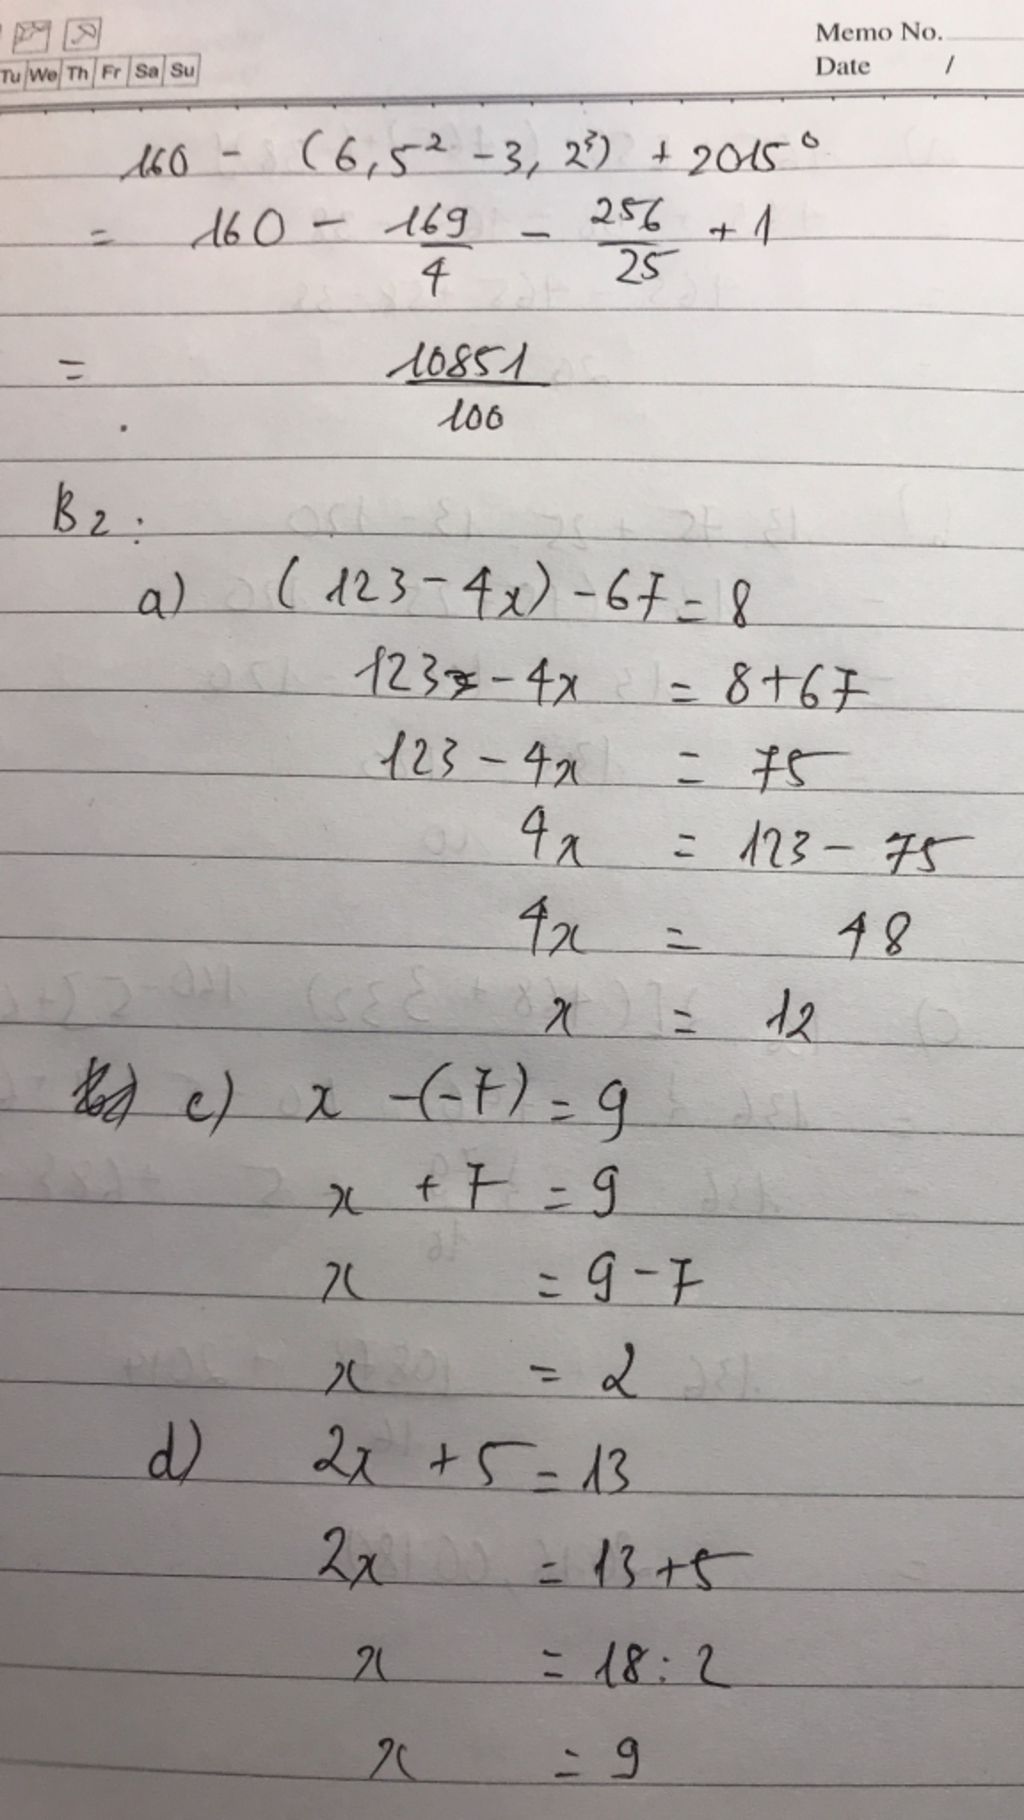 Memo No.
Tu We Th Fr Sa Su
Date /
160 - (6,5² - 3,2³) + 2015⁰
= 160 - 169/4 - 256/25 + 1
= 10851/100
B2:
a) (123 - 4x) - 67 = 8
123 - 4x = 8 + 67
123 - 4x = 75
4x = 123 - 75
4x = 48
x = 12
c) x - (-7) = 9
x + 7 = 9
x = 9 - 7
x = 2
d) 2x + 5 = 13
2x = 13 + 5
x = 18 : 2
x = 9